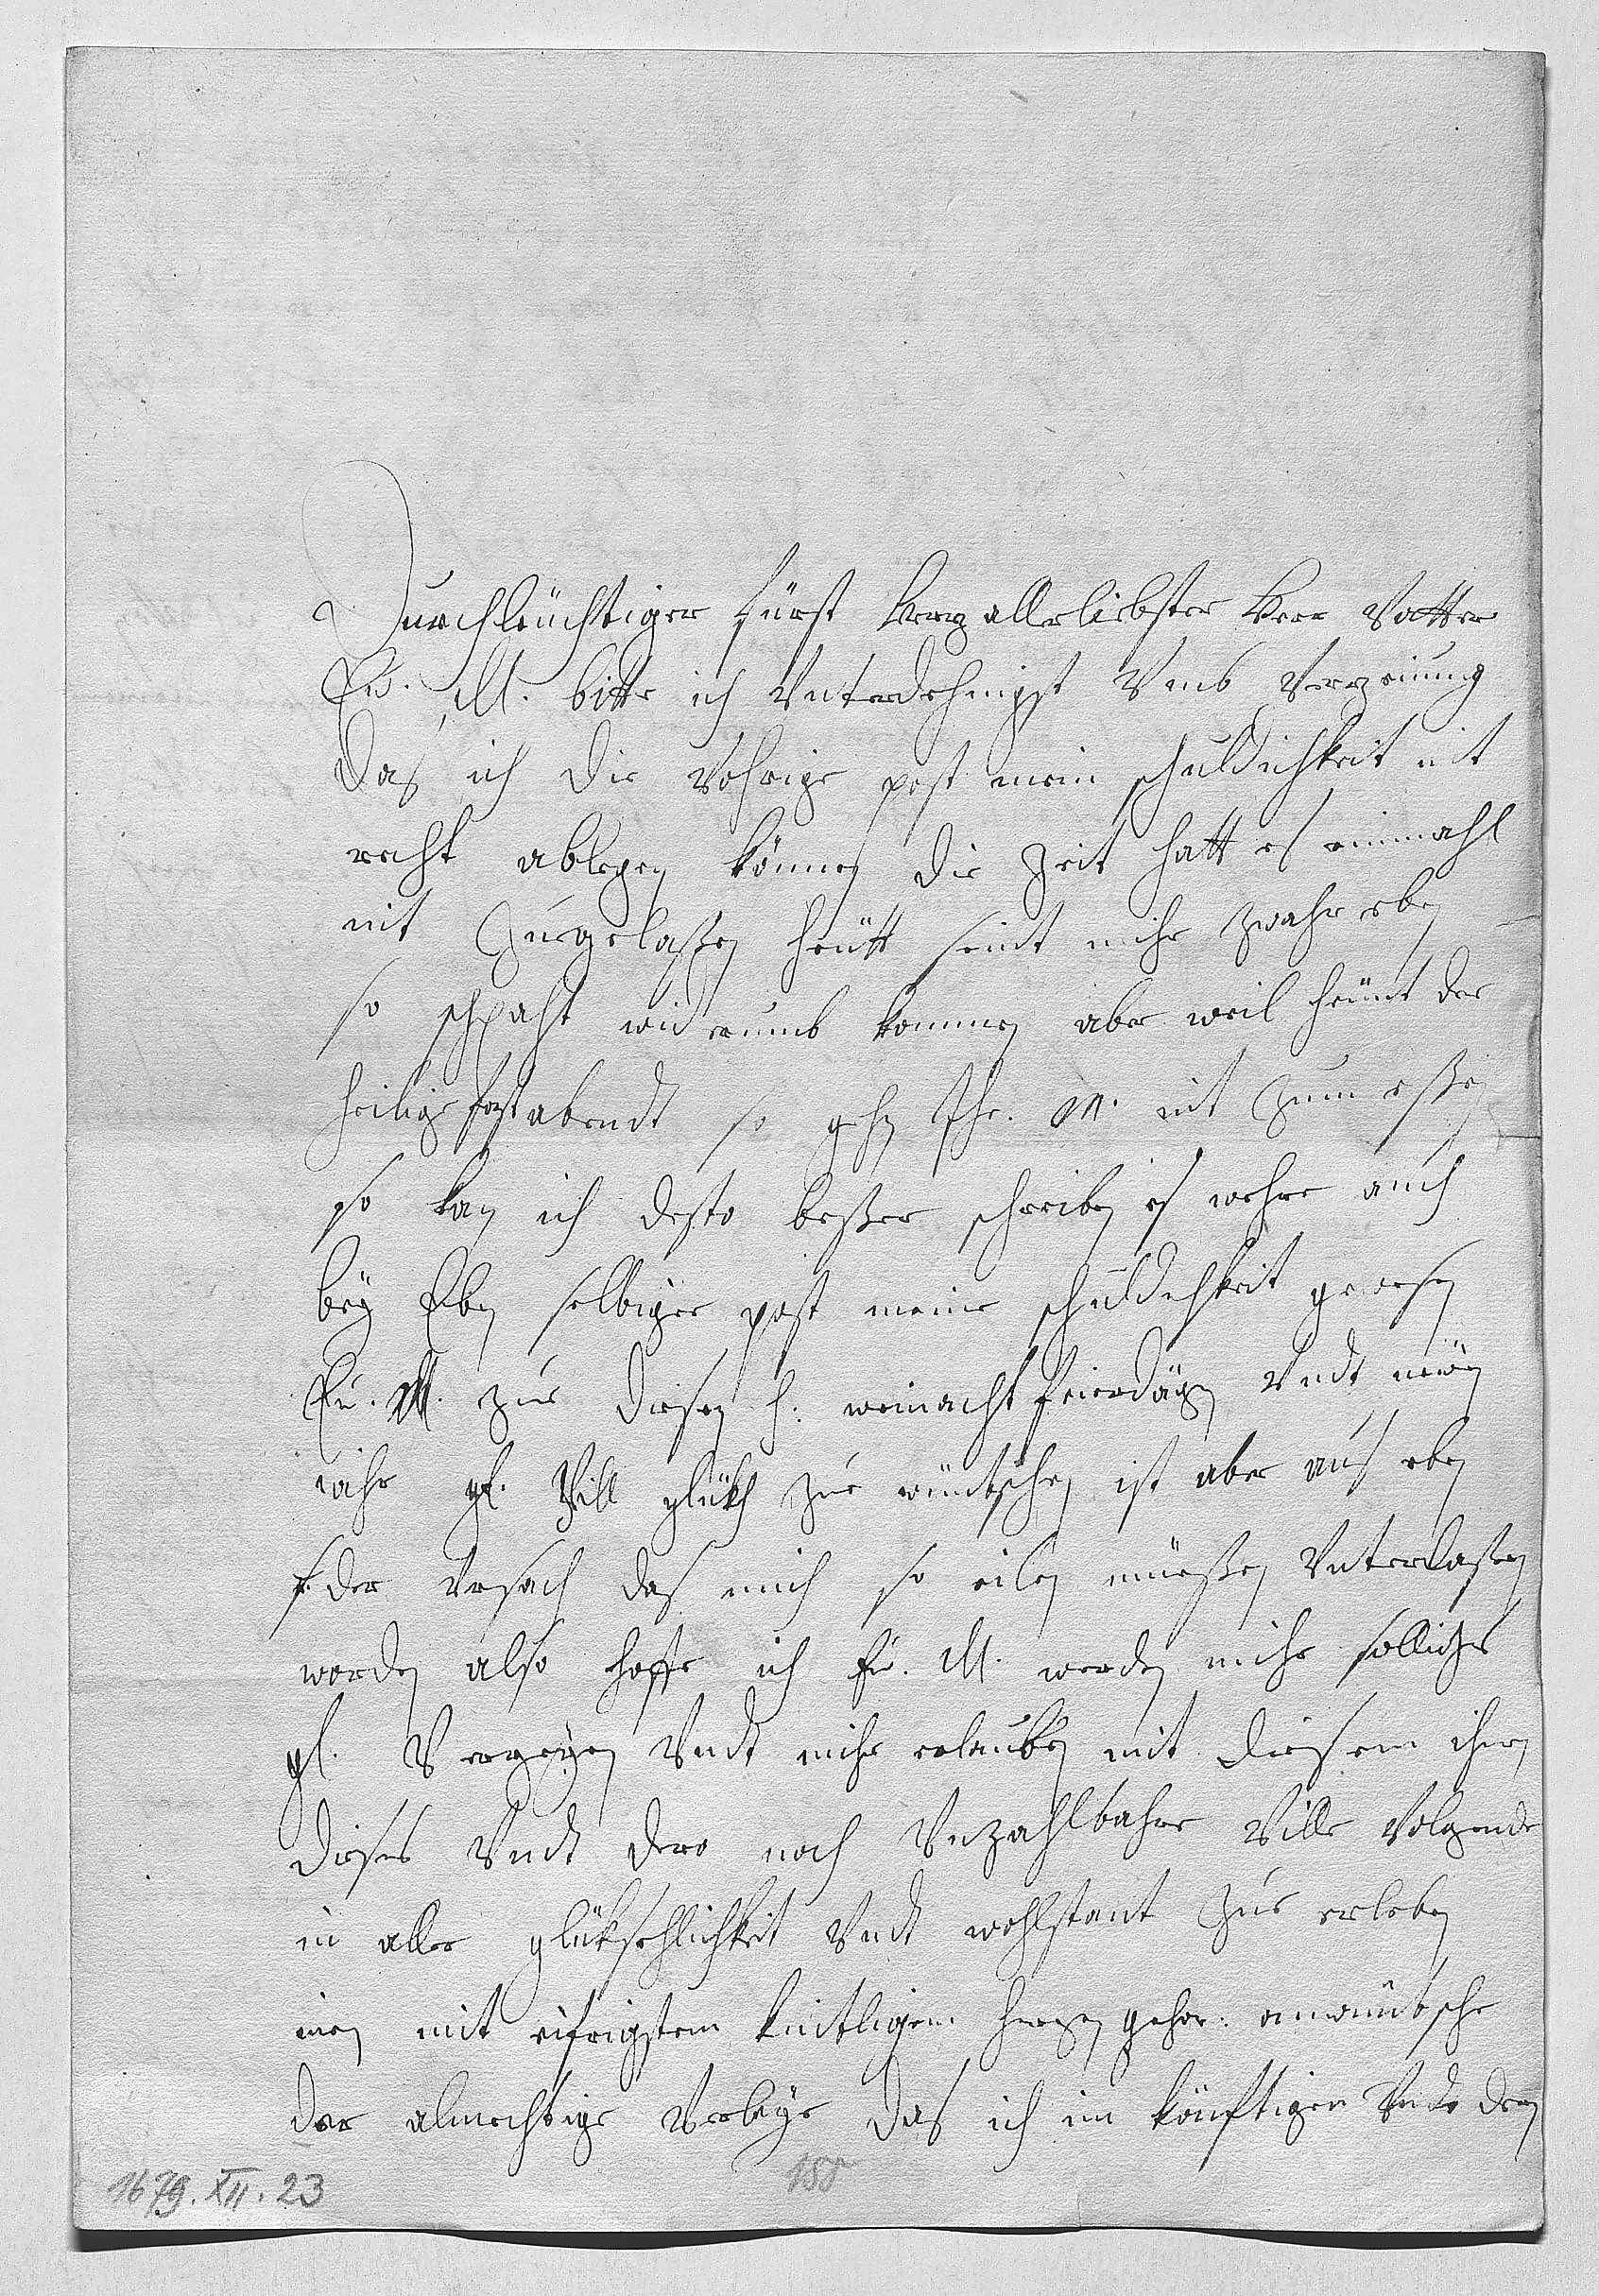 Durchleüchtiger Fürst Hertzallerliebster Herr Vatter
Eu. M. bitte ich Vnterdehnigst Vmb Verzeiung
das ich die vohrige post mein schuldichkeit nit
recht ablegen können die Zeit hatt es einmahl
nit Zugelaßen heütt seint mihr zwahr eben
so schpaht widerumb kommen aber weil heünt der
heilige fastabendt so gehen Ihr. M. nit Zum eßen
so kan ich desto beßer schreiben es wehre auch
bey Eben selbiger post meine schuldichkeit gewesen
Eu. M. zur diesen h. weinacht feierdägen Vndt neüen
iahr gl. Vill glükh zue wüntschen ist aber aus eben
der Vrsach das mich so eilen müeßen Vnterlaßen
worden also hoffe ich Eu. M. werden mihr solliches
gl. Verzeyen Vndt mihr erlauben mit diesem ihen
dieses Vndt dero noch Vnzahlbahre Ville Volgende
in aller glükhsehlichkeit Vndt wohlstant Zue erleben
inen mit eifrigstem kintligem hertzen gehor. anwüntsche
der almechtige Verleye das ich im könftigen Vnd den
1679. XII. 23
155